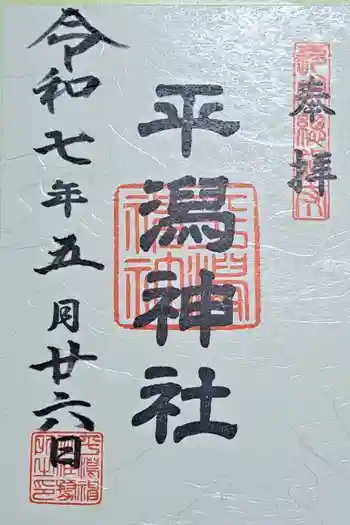 奉拝
平潟神社
令和七年五月廿六日